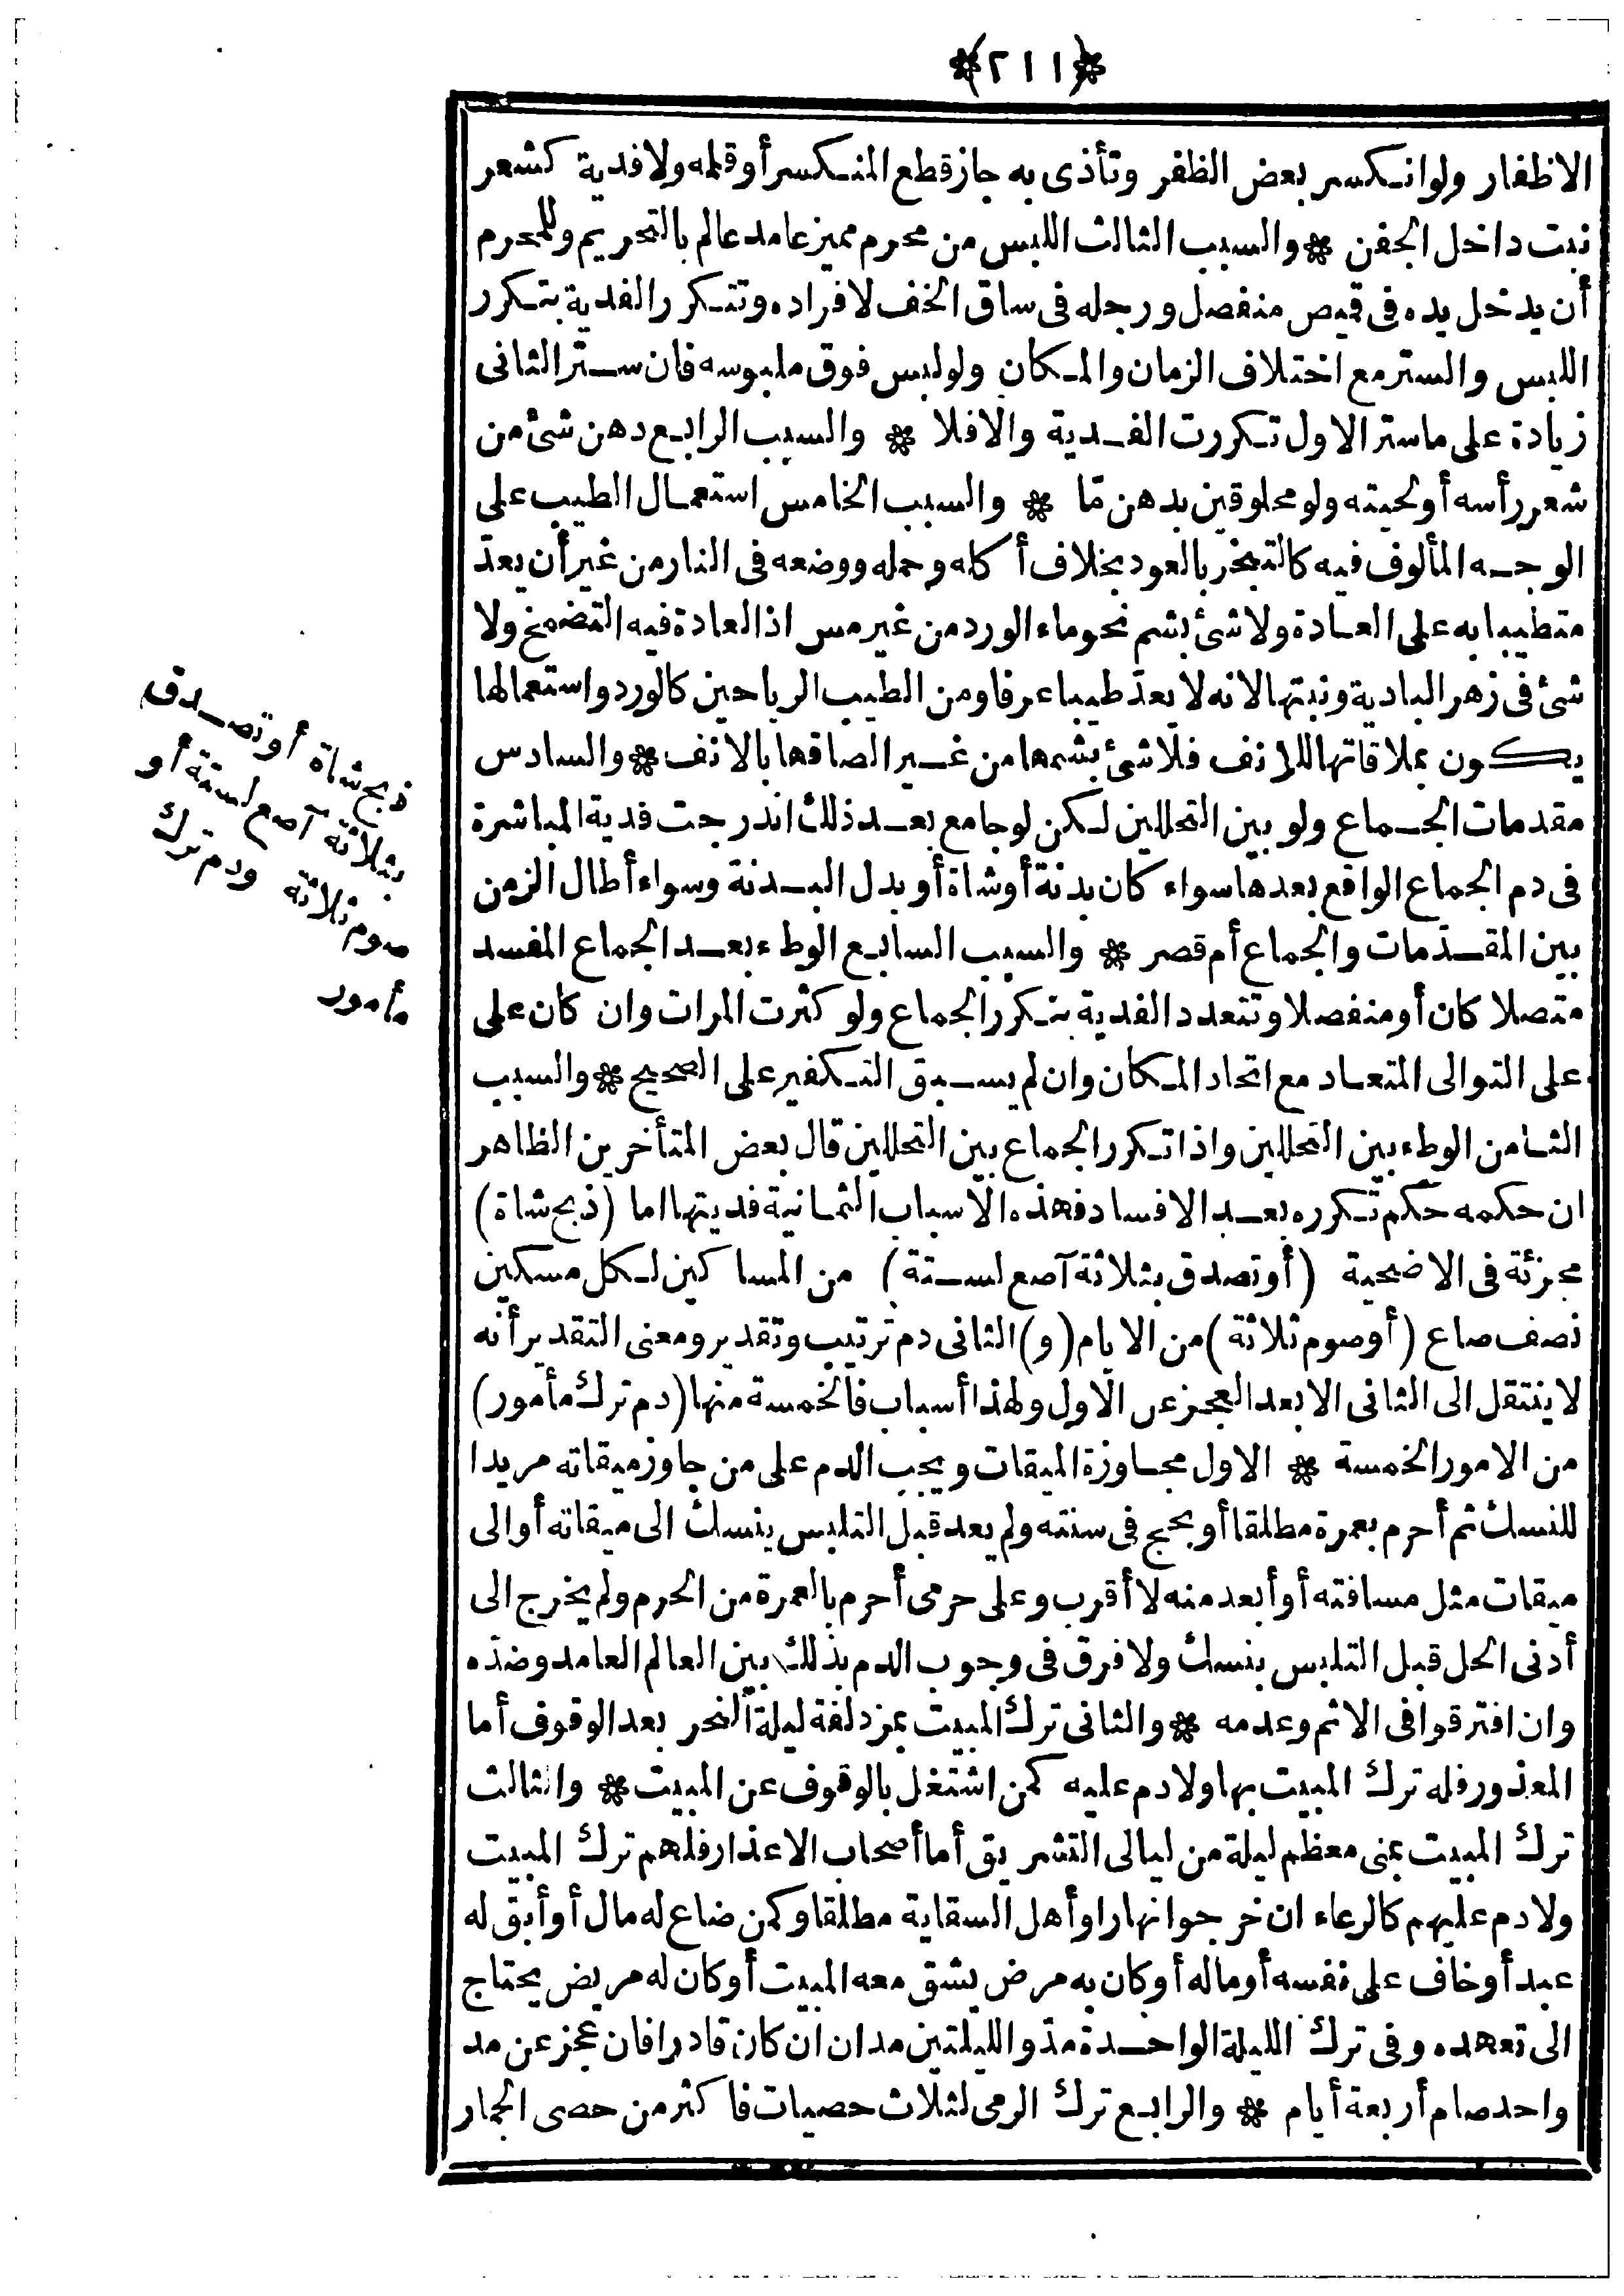 ﴿٢١١﴾
الاظفار ولو انكسر بعض الظفر وتأذى به جاز قطع المنكسر أو قلمه ولا فدية كشعر
نبت داخل الجفن * والسبب الثالث اللبس من محرم مميز عامد عالم بالتحريم وللمحرم
أن يدخل يده فى قميص منفصل ورجله فى ساق الخف لافراده وتتكرر الفدية بتكرر
اللبس والستر مع اختلاف الزمان والمكان ولو لبس فوق ملبوسه فان ستر الثانى
زيادة على ما ستر الاول تكررت الفدية والا فلا * والسبب الرابع دهن شئ من
شعر رأسه أو لحيته ولو محلوقين بدهن مّا * والسبب الخامس استعمال الطيب على
الوجه المألوف فيه كالتبخر بالعود بخلاف أكله وحمله ووضعه فى النار من غير أن يعدّ
متطيبا به على العادة ولا شئ بشم نحو ماء الورد من غير مس اذ العادة فيه التضمخ ولا
شئ فى زهر البادية ونبتها لانه لا يعدّ طيبا عرفا ومن الطيب الرياحين كالورد واستعمالها
يكون بملاقاتها للانف فلا شئ بشمها من غير الصاقها بالانف * والسادس
مقدمات الجماع ولو بين التحللين لكن لو جامع بعد ذلك اندرجت فدية المباشرة
فى دم الجماع الواقع بعدها سواء كان بدنة أو شاة أو بدل البدنة وسواء أطال الزمن
بين المقدّمات والجماع أم قصر * والسبب السابع الوطء بعد الجماع المفسد
متصلا كان أو منفصلا وتتعدد الفدية بتكرر الجماع ولو كثرت المرات وان كان على
على التوالى المتعاد مع اتحاد المكان وان لم يسبق التكفير على الصحيح * والسبب
الثامن الوطء بين التحللين واذا تكرر الجماع بين التحللين قال بعض المتأخرين الظاهر
ان حكمه حكم تكرره بعد الافساد فهذه الاسباب الثمانية فديتها اما (ذبح شاة)
مجزئة فى الاضحية (أو تصدق بثلاثة آصع لستة) من المساكين لكل مسكين
نصف صاع (أو صوم ثلاثة) من الايام (و) الثانى دم ترتيب وتقدير ومعنى التقدير أنه
لا ينتقل الى الثانى الا بعد العجز عن الاول ولهذا أسباب فالخمسة منها (دم ترك مأمور)
من الامور الخمسة * الاول مجاوزة الميقات ويجب الدم على من جاوز ميقاته مريدا
للنسك ثم أحرم بعمرة مطلقا أو بحج فى سنته ولم يعد قبل التلبس بنسك الى ميقاته أو الى
ميقات مثل مسافته أو أبعد منه لا أقرب وعلى حرمى أحرم بالعمرة من الحرم ولم يخرج الى
أدنى الحل قبل التلبس بنسك ولا فرق فى وجوب الدم بذلك بين العالم العامد وضدّه
وان افترقوا فى الاثم وعدمه * والثانى ترك المبيت بمزدلفة ليلة النحر بعد الوقوف أما
المعذور فله ترك المبيت بها ولا دم عليه كمن اشتغل بالوقوف عن المبيت * والثالث
ترك المبيت بمنى معظم ليلة من ليالى التشريق أما أصحاب الاعذار فلهم ترك المبيت
ولا دم عليهم كالرعاء ان خرجوا نهارا وأهل السقاية مطلقا وكمن ضاع له مال أو أبق له
عبد أو خاف على نفسه أو ماله أو كان به مرض يشق معه المبيت أو كان له مريض يحتاج
الى تعهده وفى ترك الليلة الواحدة مدّ والليلتين مدان ان كان قادرا فان عجز عن مد
واحد صام أربعة أيام * والرابع ترك الرمى لثلاث حصيات فاكثر من حصى الجمار
ذبح شاة أو تصدق
بثلاثة آصع لستة أو
صوم ثلاثة ودم ترك
مأمور